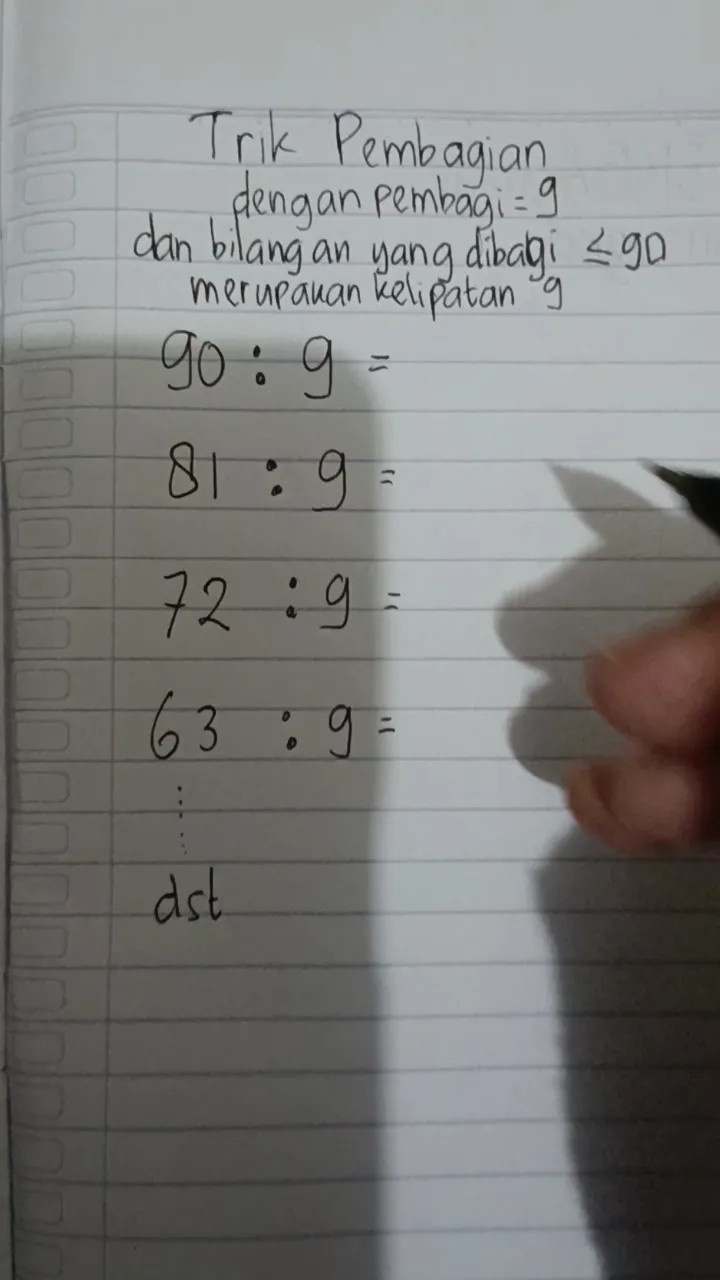 Trik Pembagian
dengan pembagi = 9
dan bilangan yang dibagi ≤ 90
merupakan kelipatan 9
90 : 9 =
81 : 9 =
72 : 9 =
63 : 9 =
......
dst